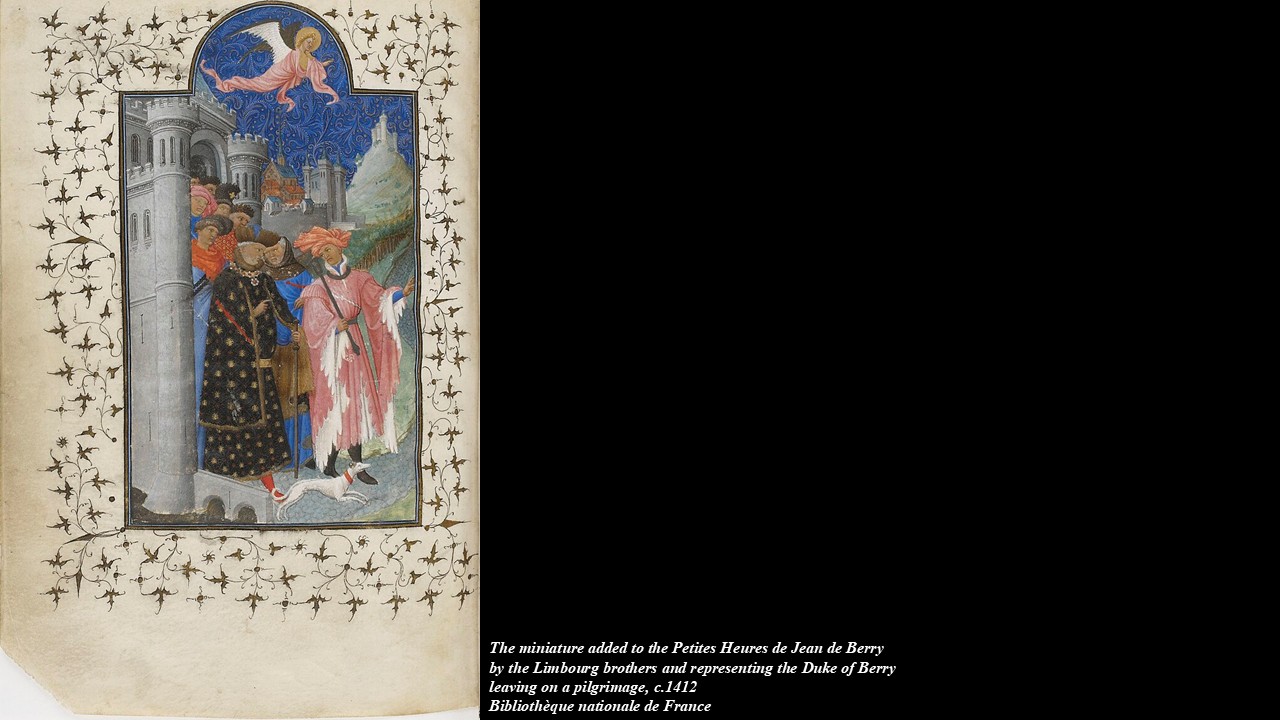 The miniature added to the Petites Heures de Jean de Berry
by the Limbourg brothers and representing the Duke of Berry
leaving on a pilgrimage, c.1412
Bibliothèque nationale de France